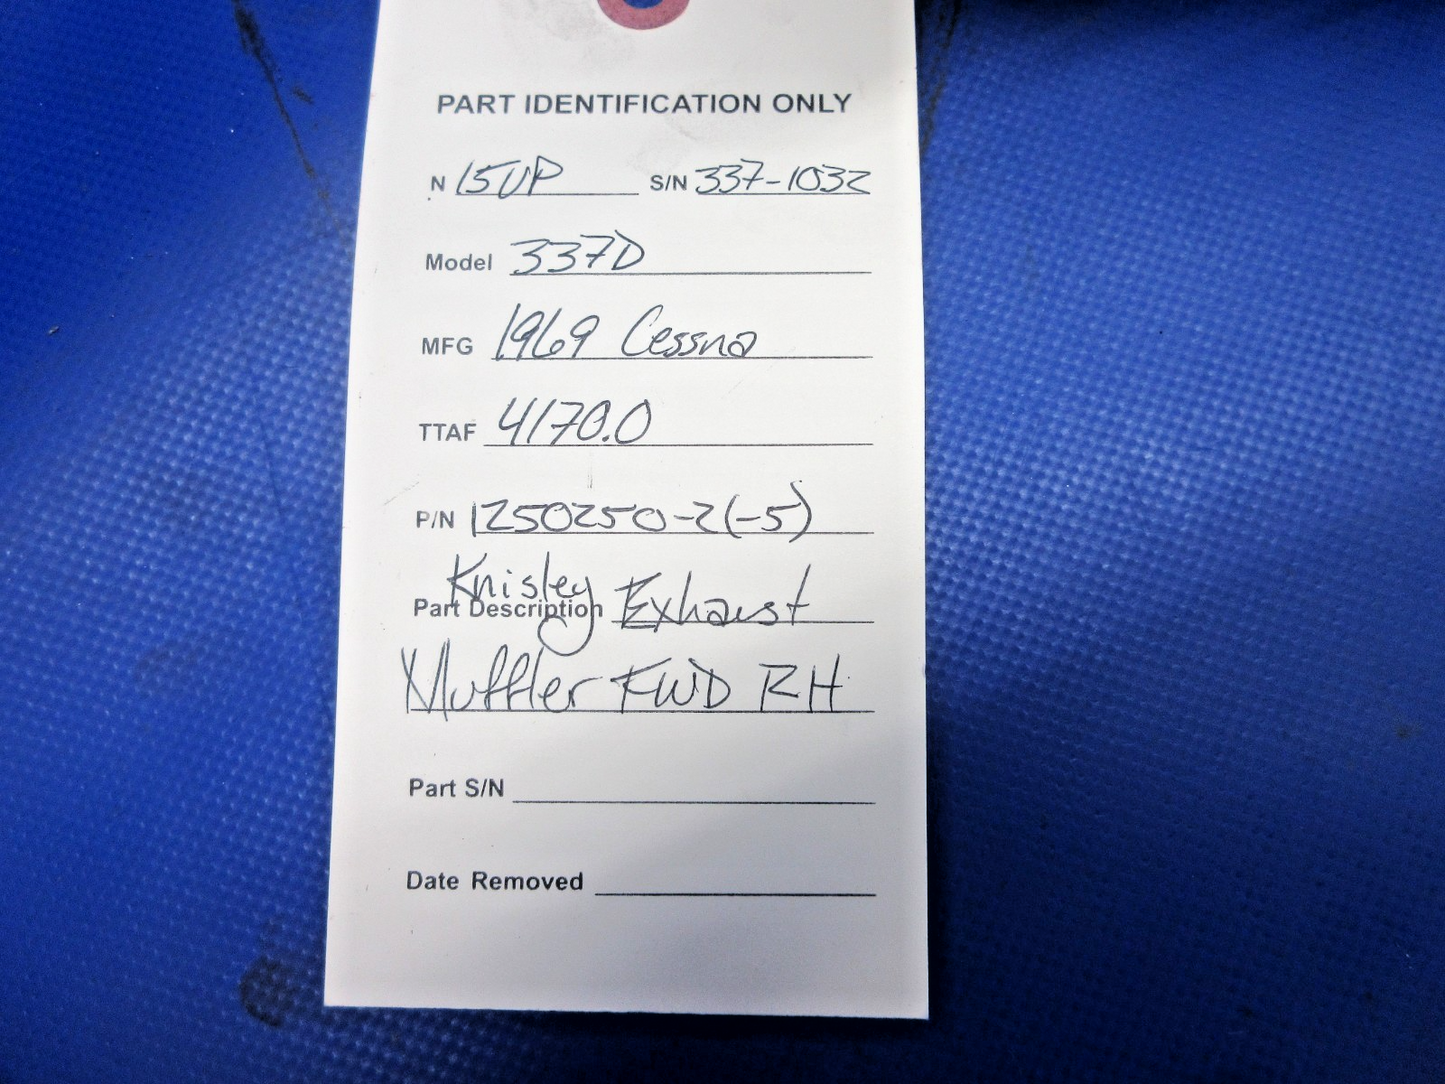 PART IDENTIFICATION ONLY
N 15UP S/N 337-1032
Model 337D
MFG 1969 Cessna
TTAF 4170.0
P/N 1250250-2(-5)
Knisley
Part Description Exhaust
Muffler FWD RH
Part S/N
Date Removed